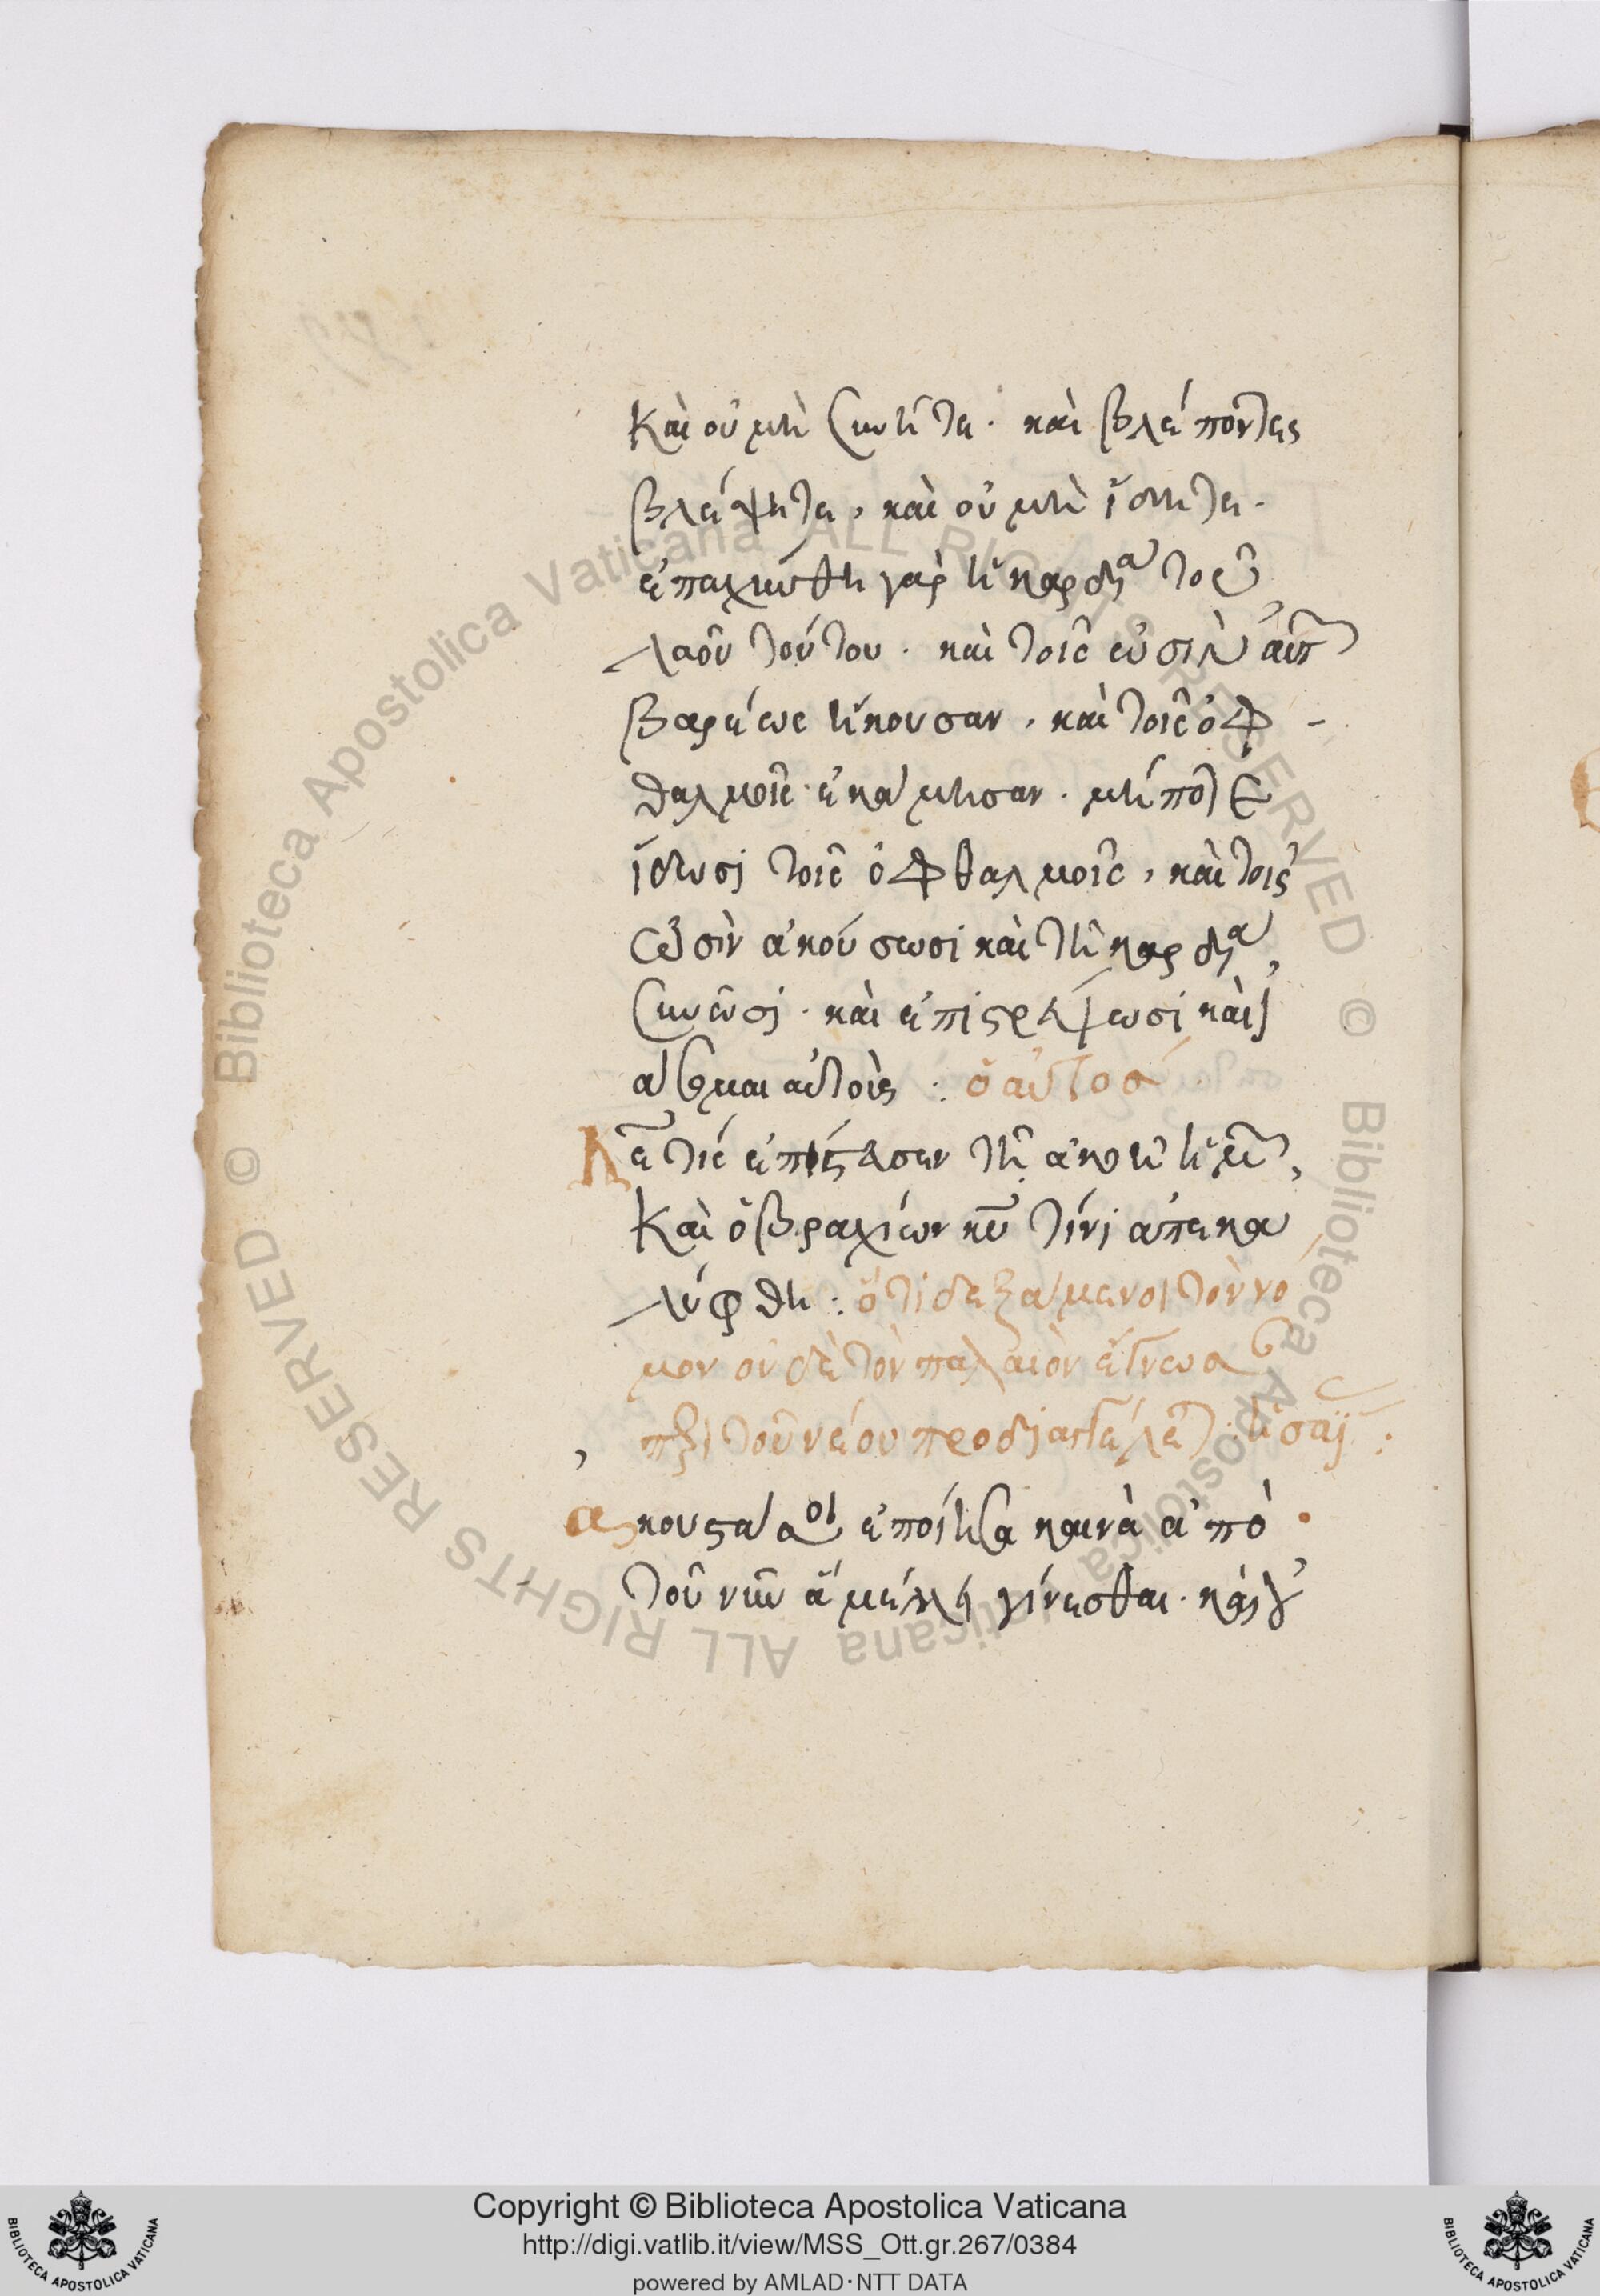 Καὶ οὐ μὴ συνῆτε· καὶ βλέποντες
βλέψητε, καὶ οὐ μὴ ἴδητε·
ἐπαχύνθη γὰρ ἡ καρδία τοῦ
λαοῦ τούτου· καὶ τοῖς ὠσὶν αὐτ
βαρέως ἤκουσαν, καὶ τοῖς ὀφ-
θαλμοῖς ἐκάμμησαν· μήποτε
ἴδωσι τοῖς ὀφθαλμοῖς, καὶ τοῖς
ὠσὶν ἀκούσωσι καὶ τῇ καρδία,
συνῶσι· καὶ ἐπιστρέψωσι καὶ ἰ
άσομαι αὐτούς : ὁ αὐτόσ
Κε τίς ἐπίστευσεν τῇ ἀκοῇ ἡμ,
Καὶ ὁ βραχίων κυ τίνι ἀπεκα
λύφθη : ὅτι δεξάμενοι τὸν νό
μον οὐδὲ τὸν παλαιὸν ἔγνωσα
περὶ τοῦ νέου προδιαγγέλετ : ἡσαΐ :
ακουστά σοι ἐποίησα καινὰ ἀπὸ
τοῦ νῦν ἃ μέλλει γίνεσθαι·
Copyright © Biblioteca Apostolica Vaticana
http://digi.vatlib.it/view/MSS_Ott.gr.267/0384
powered by AMLAD·NTT DATA
BIBLIOTECA APOSTOLICA VATICANA
BIBLIOTECA APOSTOLICA VATICANA
© Biblioteca Apostolica Vaticana ALL RIGHTS RESERVED © Biblioteca Apostolica Vaticana ALL RIGHTS RESERVED